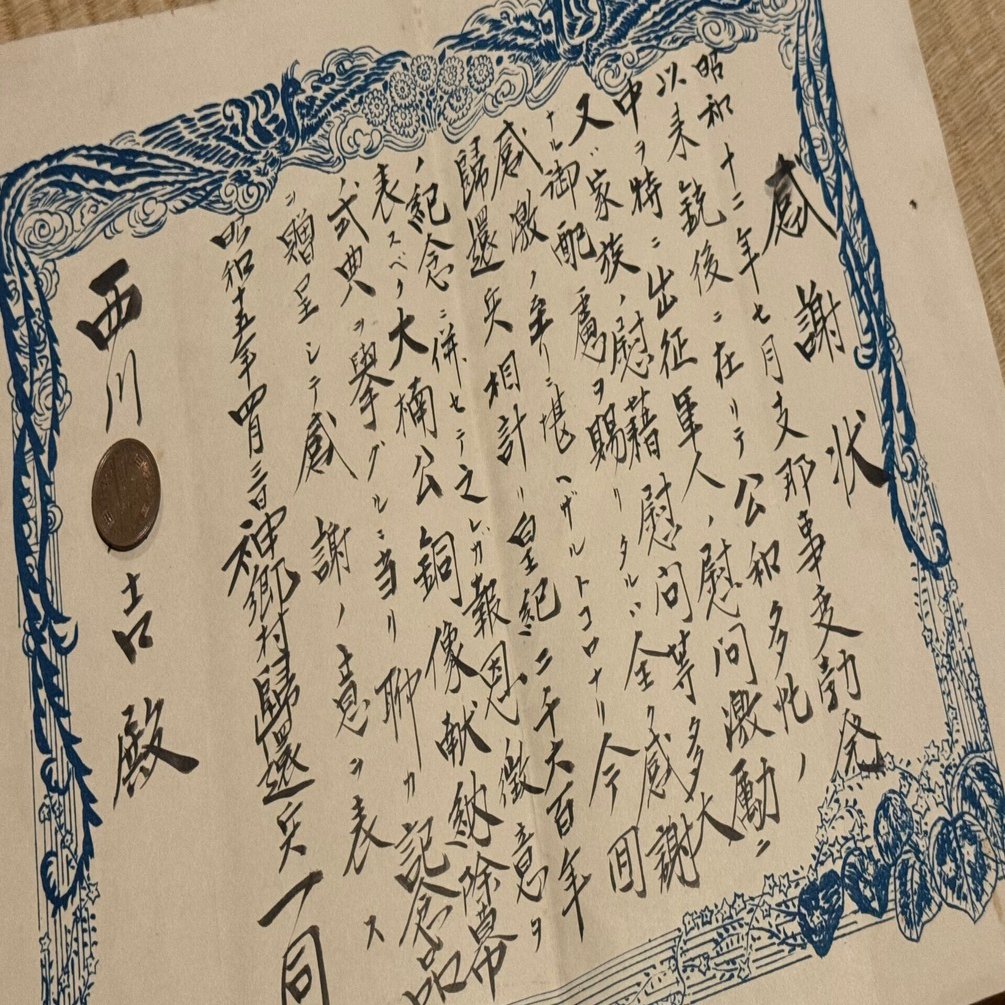 感謝状
昭和十二年七月支那事変勃発
以来銃後ニ在リテ公和多忙ノ
中ヲ特ニ出征軍人ノ慰問激励ニ
又ハ家族ノ慰藉慰問等多大
ナル御配慮ヲ賜リタルハ全ク感謝
感激ノ至リニ堪ヘザルトコロナリ今回
歸還兵相計リ皇紀二千六百年
ノ紀念ニ併セテ之レガ報恩ノ徴意ヲ
表スベク大楠公銅像献納除幕
ノ式典ヲ擧グルニ当リ聊カ記念品
ヲ贈呈シテ感謝ノ意ヲ表ス
昭和十五年四月三日神郷村歸還兵一同
西川 吉殿